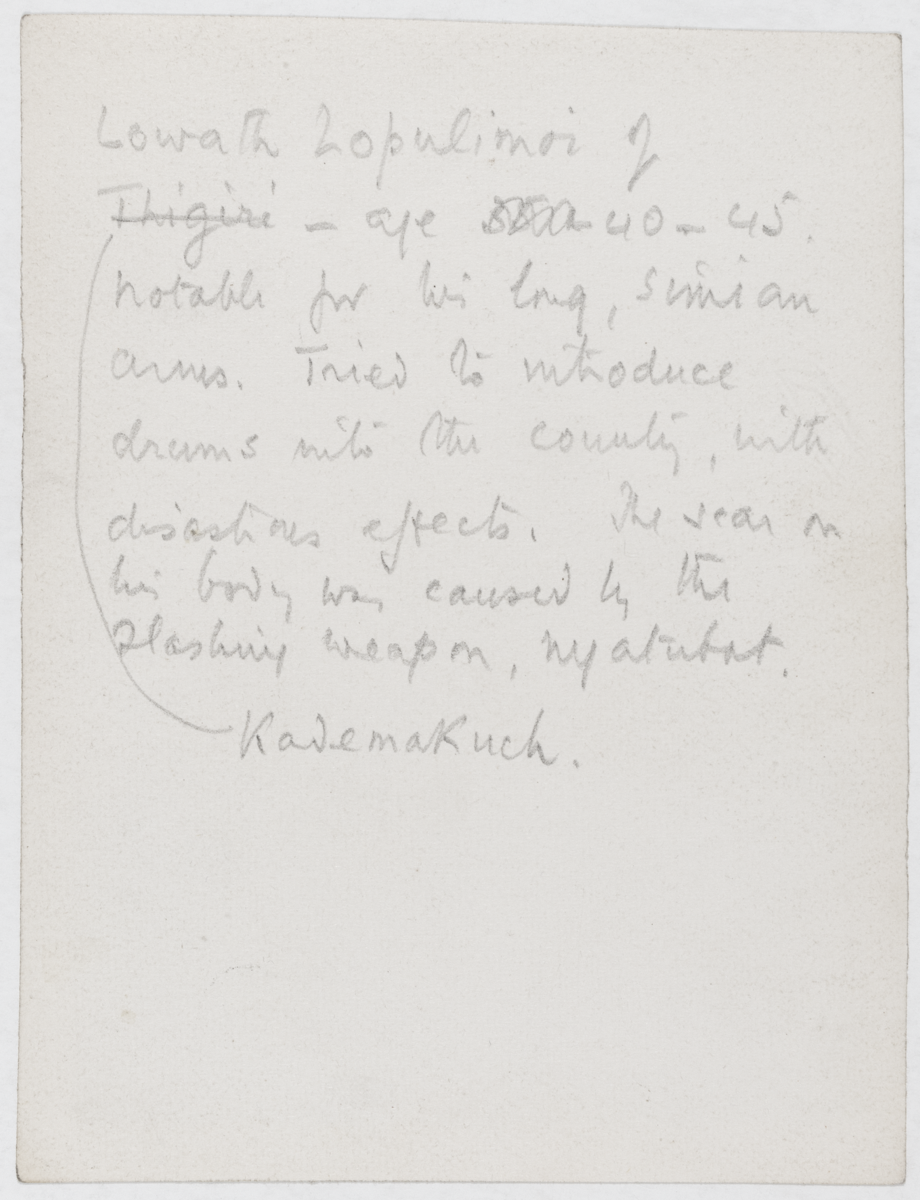 Lowath Lopulimoi of
Thigiri - age 40 - 45.
Notable for his long, simian
arms. Tried to introduce
drums into the country, with
disastrous effects. The scar on
his body was caused by the
slashing weapon, nyatubat.
Kademakuch.